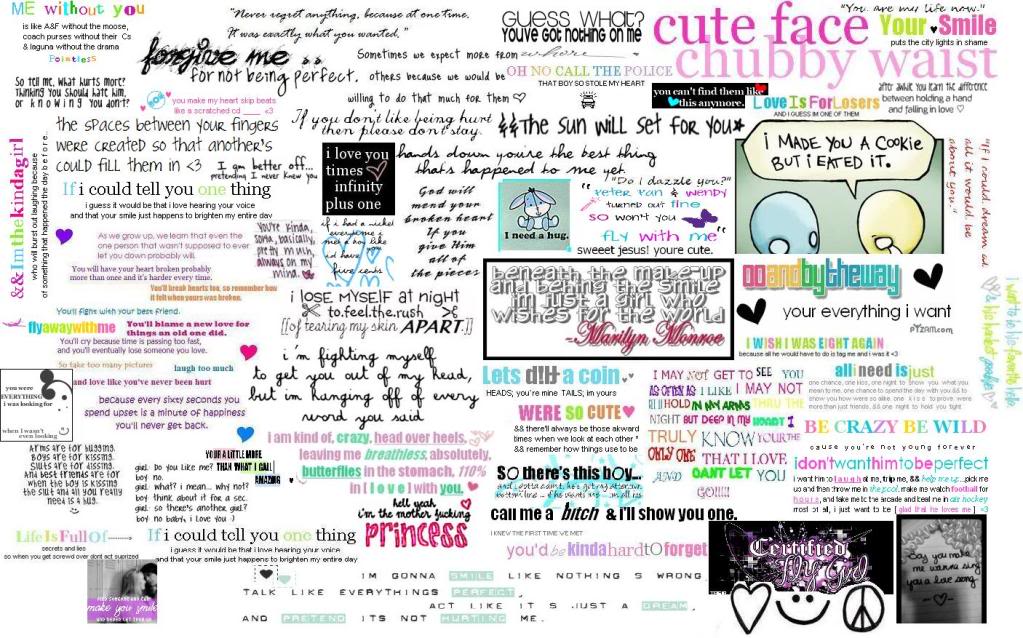 ME without you
is like A&F without the moose,
coach purses without their Cs
& laguna without the drama
Pointless
So tell me, What hurts more?
Thinking you should hate him,
or knowing you don't?
"Never regret anything, because at one time,
It was exactly what you wanted."
forgive me
for not being perfect.
Sometimes we expect more from
others because we would be
willing to do that much for them
you make my heart skip beats
like a scratched cd ____ <3
GUESS WHAT?
YOUVE GOT NOTHING ON ME
OH NO CALL THE POLICE
THAT BOY SO STOLE MY HEART
cute face
chubby waist
"You are my life now."
Your Smile
puts the city lights in shame
you can't find them like
this anymore.
Love Is For Losers
AND I GUESS IM ONE OF THEM
after awhile you learn the difference
between holding a hand
and falling in love
the spaces between your fingers
were created so that another's
could fill them in <3
I am better off...
pretending I never knew you
If you don't like being hurt
then please don't stay.
&&The sun will set for you
i love you
times
infinity
plus one
hands down you're the best thing
that's happened to me yet.
God will
mend your
broken heart
If you
give Him
all of
the pieces
I need a hug.
"Do i dazzle you?"
Peter Pan & Wendy
turned out fine
so won't you
fly with me
sweeet jesus! youre cute.
I MADE YOU A COOKIE
BUT I EATED IT.
"If I could dream at
all it would be
about you."
&&Imthekindagirl
who will burst out laughing because
of something that happened the day before.
If i could tell you one thing
i guess it would be that i love hearing your voice
and that your smile just happens to brighten my entire day
As we grow up, we learn that even the
one person that wasn't supposed to ever
let you down probably will.
You will have your heart broken probably
more than once and it's harder every time.
You'll break hearts too, so remember how
it felt when yours was broken.
You'll fight with your best friend.
flyawaywithme
You'll blame a new love for
things an old one did.
You'll cry because time is passing too fast,
and you'll eventually lose someone you love.
So take too many pictures
laugh too much
and love like you've never been hurt
because every sixty seconds you
spend upset is a minute of happiness
you'll never get back.
You're kinda,
sorta, basically,
pretty much,
always on my
mind.
if i had a nickel
five cents
i lose myself at night
to.feel.the.rush
[[of tearing my skin APART.]]
beneath the make-up
and behind the smile
im just a girl who
wishes for the world
-Marilyn Monroe
ooandbytheway
your everything i want
pYzam.com
I WISH I WAS EIGHT AGAIN
because all he would have to do is tag me and i was it <3
you were
EVERYTHING
i was looking for
when I wasn't
even looking
i'm fighting myself
to get you out of my head,
but im hanging off of every
word you said
Lets d!tt a coin
HEADS; you're mine TAILS; im yours
WERE SO CUTE
&& there'll always be those akward
times when we look at each other
&& remember how things use to be
I MAY NOT GET TO SEE YOU
AS OFTEN AS I LIKE I MAY NOT
HOLD IN MY ARMS THRU THE
NIGHT BUT DEEP IN MY HEART I
TRULY KNOW YOUR THE
ONLY ONE THAT I LOVE
AND CANT LET YOU
GO!!!!!
all i need is just
one chance, one kiss, one night to show you what you
BE CRAZY BE WILD
cause you're not young forever
i am kind of, crazy, head over heels.
leaving me breathless, absolutely,
butterflies in the stomach, 110%
in [ love ] with you.
Arms are for hugging,
Boys are for kissing,
Sluts are for dissing,
and best friends are for
when the boy is kissing
the slut and all you really
need is a hug.
YOUR A LITTLE MORE
THAN WHAT I CALL
AMAZING
girl: Do you like me?
boy: no.
girl: what? i mean... why not?
boy: think about it for a sec.
girl: so there's another girl?
boy: no baby, i love you :)
hell yeah
i'm the mother fucking
PRINCESS
So there's this boy...
call me a bitch & i'll show you one.
I KNEW THE FIRST TIME I'VE MET
you'd be kinda hard tO forget
i don't want him to be perfect
i want him to laugh at me, trip me, && help me up...pick
us and then throw me in the pool, make me watch football for
hours, and take me to the arcade and beat me in air hockey
most of all, i just want to be [ glad that he loves me ] <3
Life Is Full Of
secrets and lies
so when you get screwed over dont act suprized
If i could tell you one thing
i guess it would be that i love hearing your voice
and that your smile just happens to brighten my entire day
find someone who can
make you smile
IM GONNA SMILE LIKE NOTHING S WRONG,
TALK LIKE EVERYTHINGS PERFECT,
ACT LIKE IT S JUST A DREAM,
AND PRETEND ITS NOT HURTING ME.
Certified
Fly Girl
Boy you make
me wanna sing
you a love song